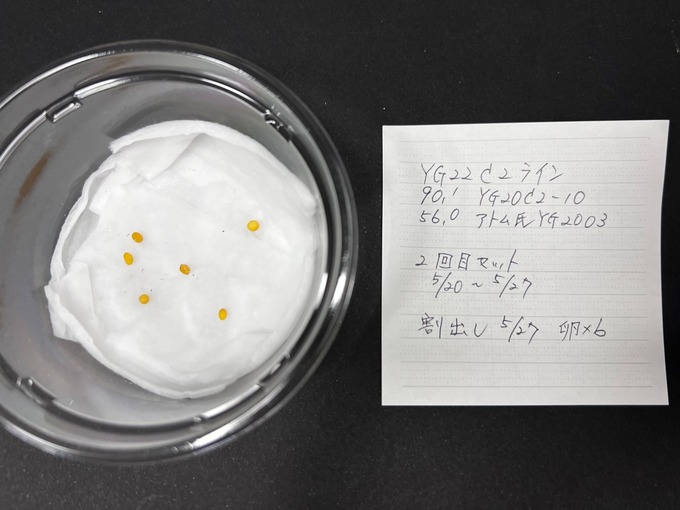 YG22 C2ライン
90.1 YG20C2-10
56.0 アトム氏YG2003
2回目セット
5/20～5/27
割出し 5/27 卵×6